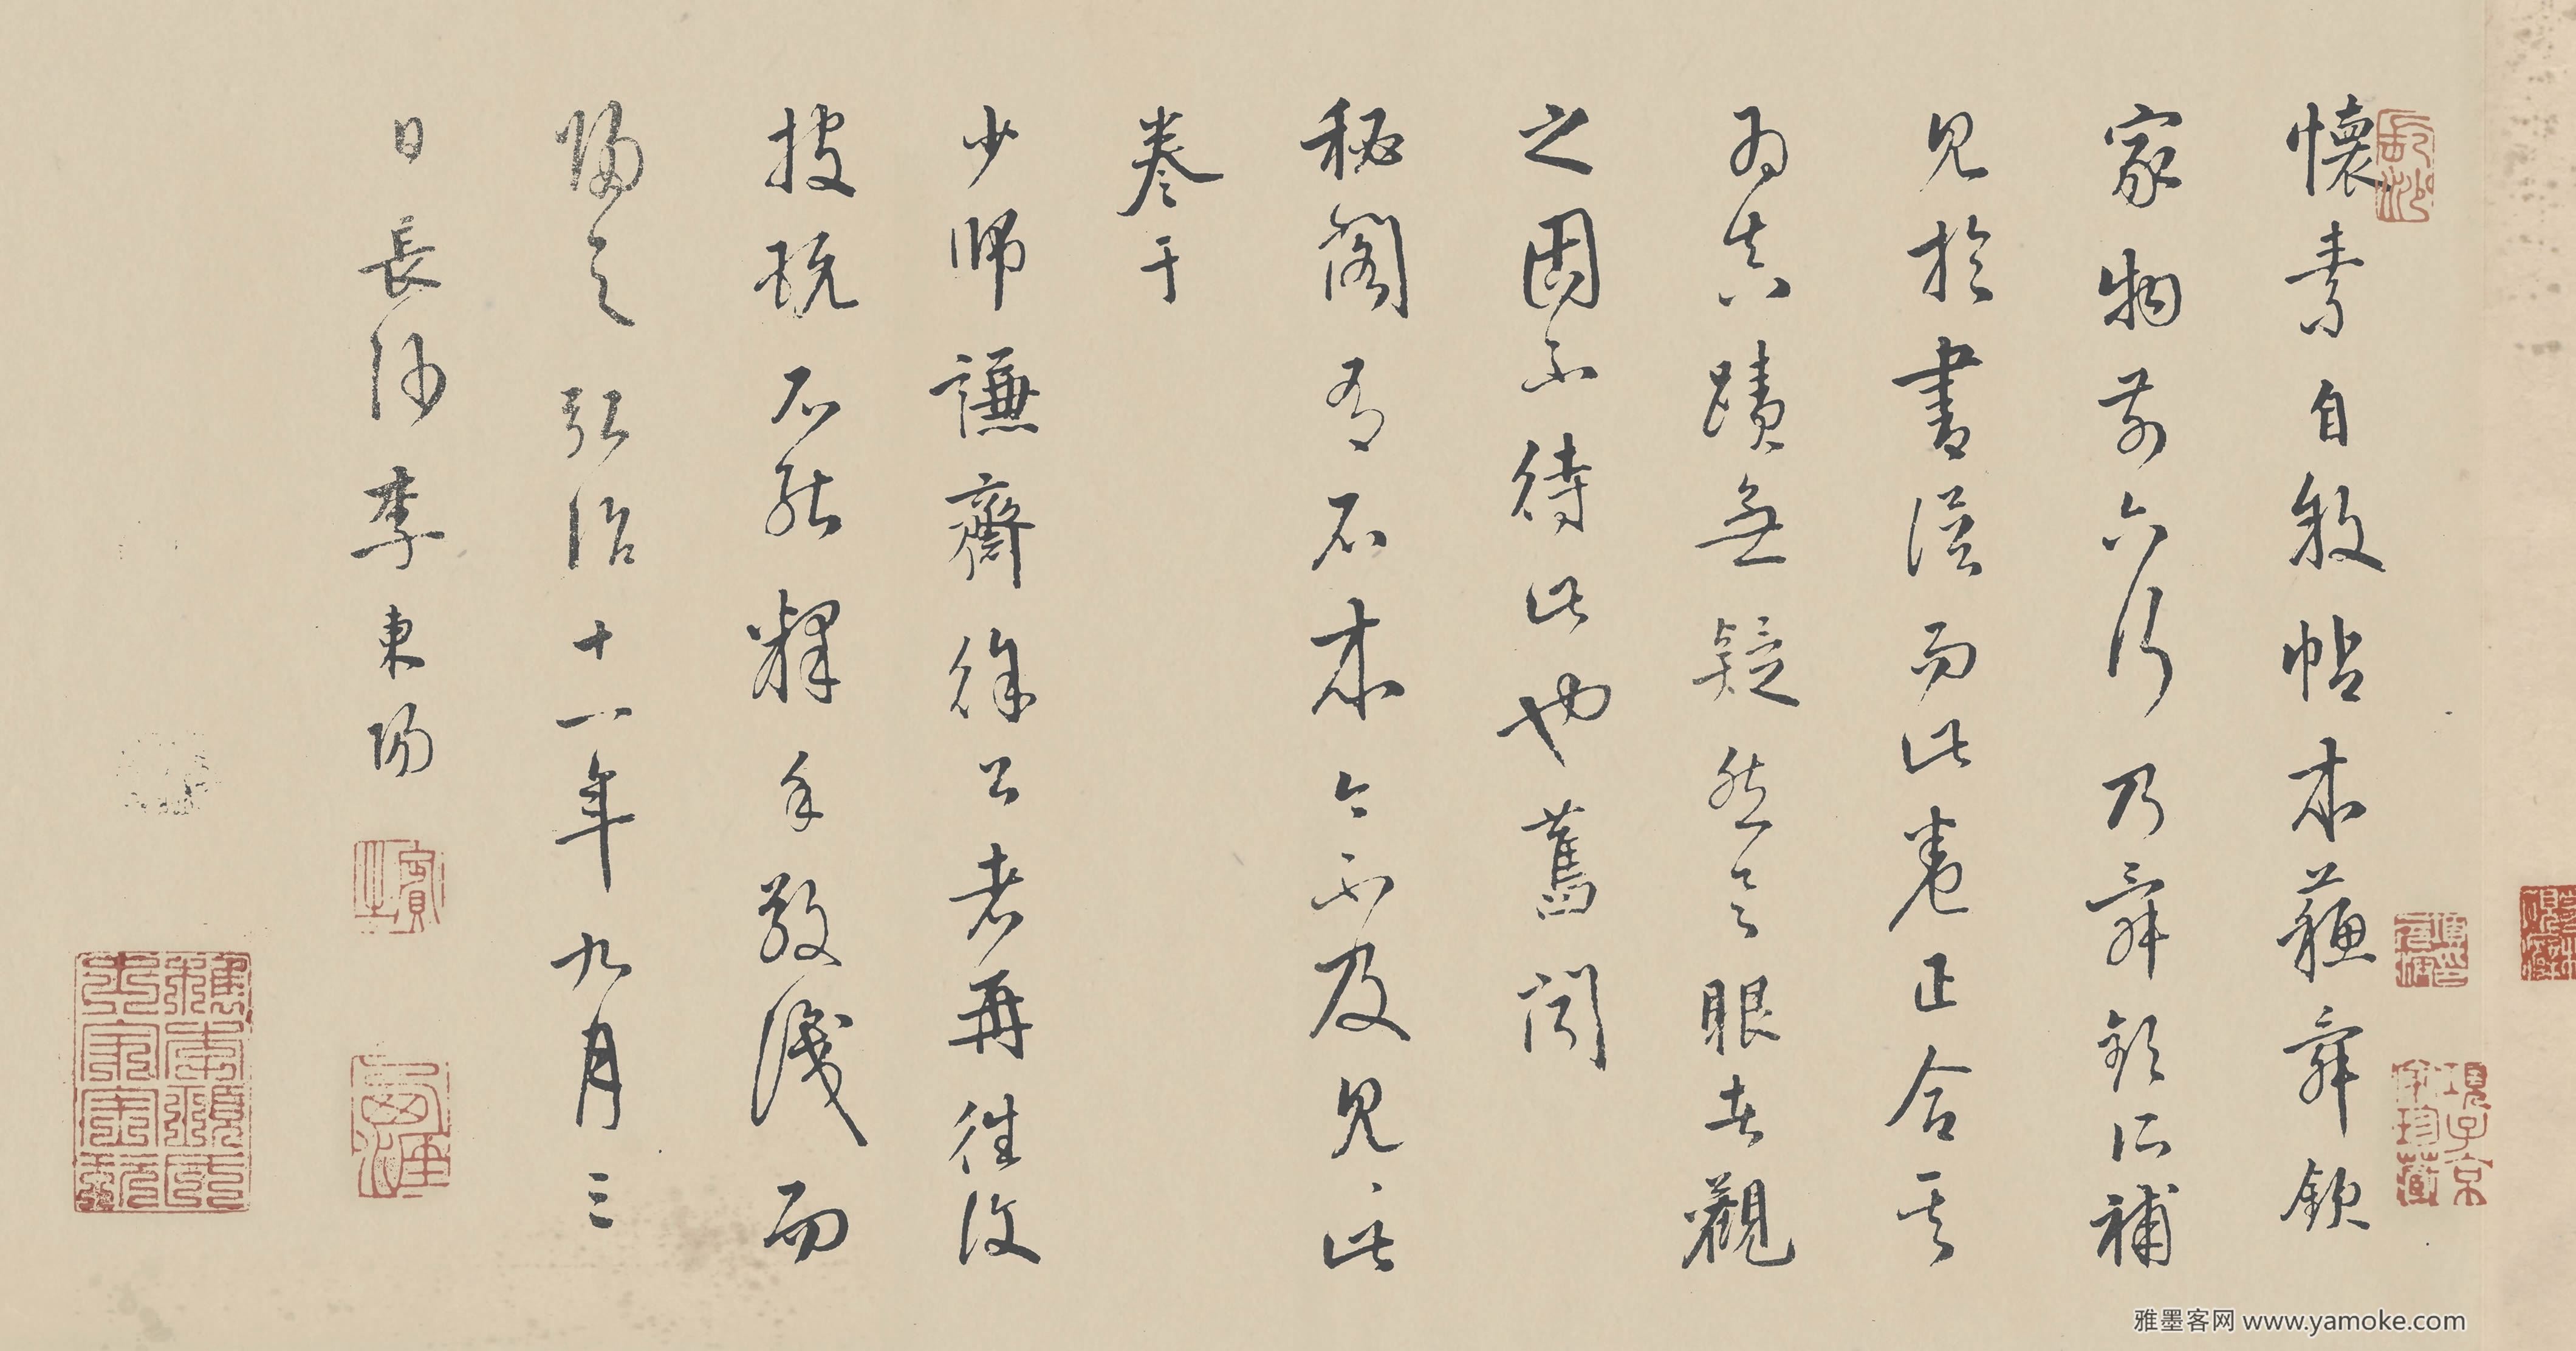 懷素自敘帖本蘇舜欽
家物前六行乃舜欽所補
見於書譜而此卷正合其
為真蹟無疑然具眼者觀
之固不待此也舊聞
秘閣有石本今不及見此
卷于
少師謙齋徐公者再往復
披玩不能釋手敬識而
歸之弘治十一年九月三
日長沙李東陽
項子京家珍藏
賓之
雅墨客网 www.yamoke.com